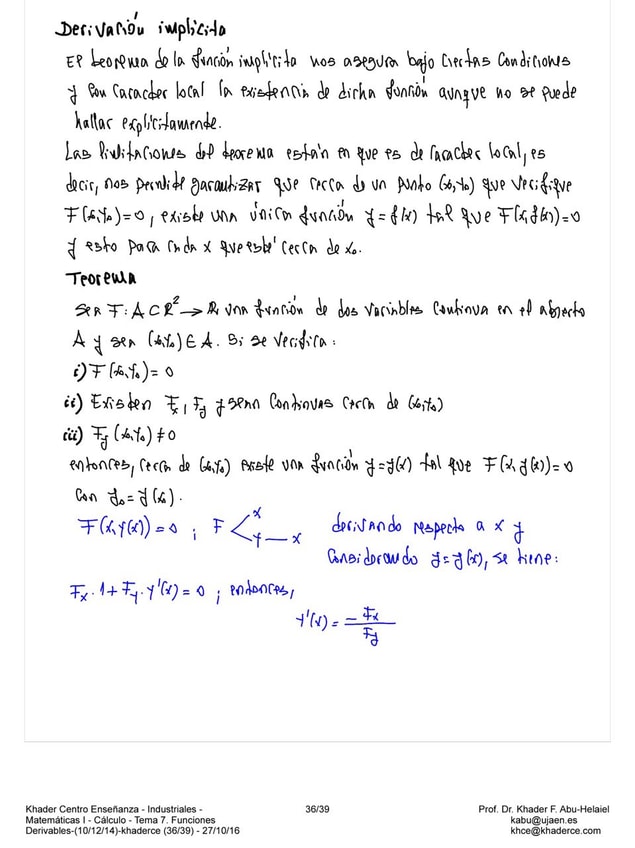 Derivación implícita
El teorema de la función implícita nos asegura bajo ciertas condiciones
y con caracter local la existencia de dicha función aunque no se puede
hallar explícitamente.
Las limitaciones del teorema están en que es de caracter local, es
decir, nos permite garantizar que cerca de un punto (x₀,y₀) que verifique
F(x₀,y₀)=0, existe una única función y=f(x) tal que F(x,f(x))=0
y esto para cada x que esté cerca de x₀.
Teorema
Sea F: A⊂R² → R una función de dos variables continua en el abierto
A y sea (x₀,y₀) ∈ A. Si se verifica:
i) F(x₀,y₀) = 0
ii) Existen Fx, Fy y sean continuas cerca de (x₀,y₀)
iii) Fy (x₀,y₀) ≠ 0
entonces, cerca de (x₀,y₀) existe una función y=y(x) tal que F(x,y(x))=0
con y₀=y(x₀).
F(x,y(x))=0 ; F < x y — x derivando respecto a x y
considerando y=y(x), se tiene:
Fx · 1 + Fy · y'(x) = 0 ; entonces,
y'(x) = -Fx / Fy
Khader Centro Enseñanza - Industriales - 36/39 Prof. Dr. Khader F. Abu-Helaiel
Matemáticas I - Cálculo - Tema 7. Funciones kabu@ujaen.es
Derivables-(10/12/14)-khaderce (36/39) - 27/10/16 khce@khaderce.com